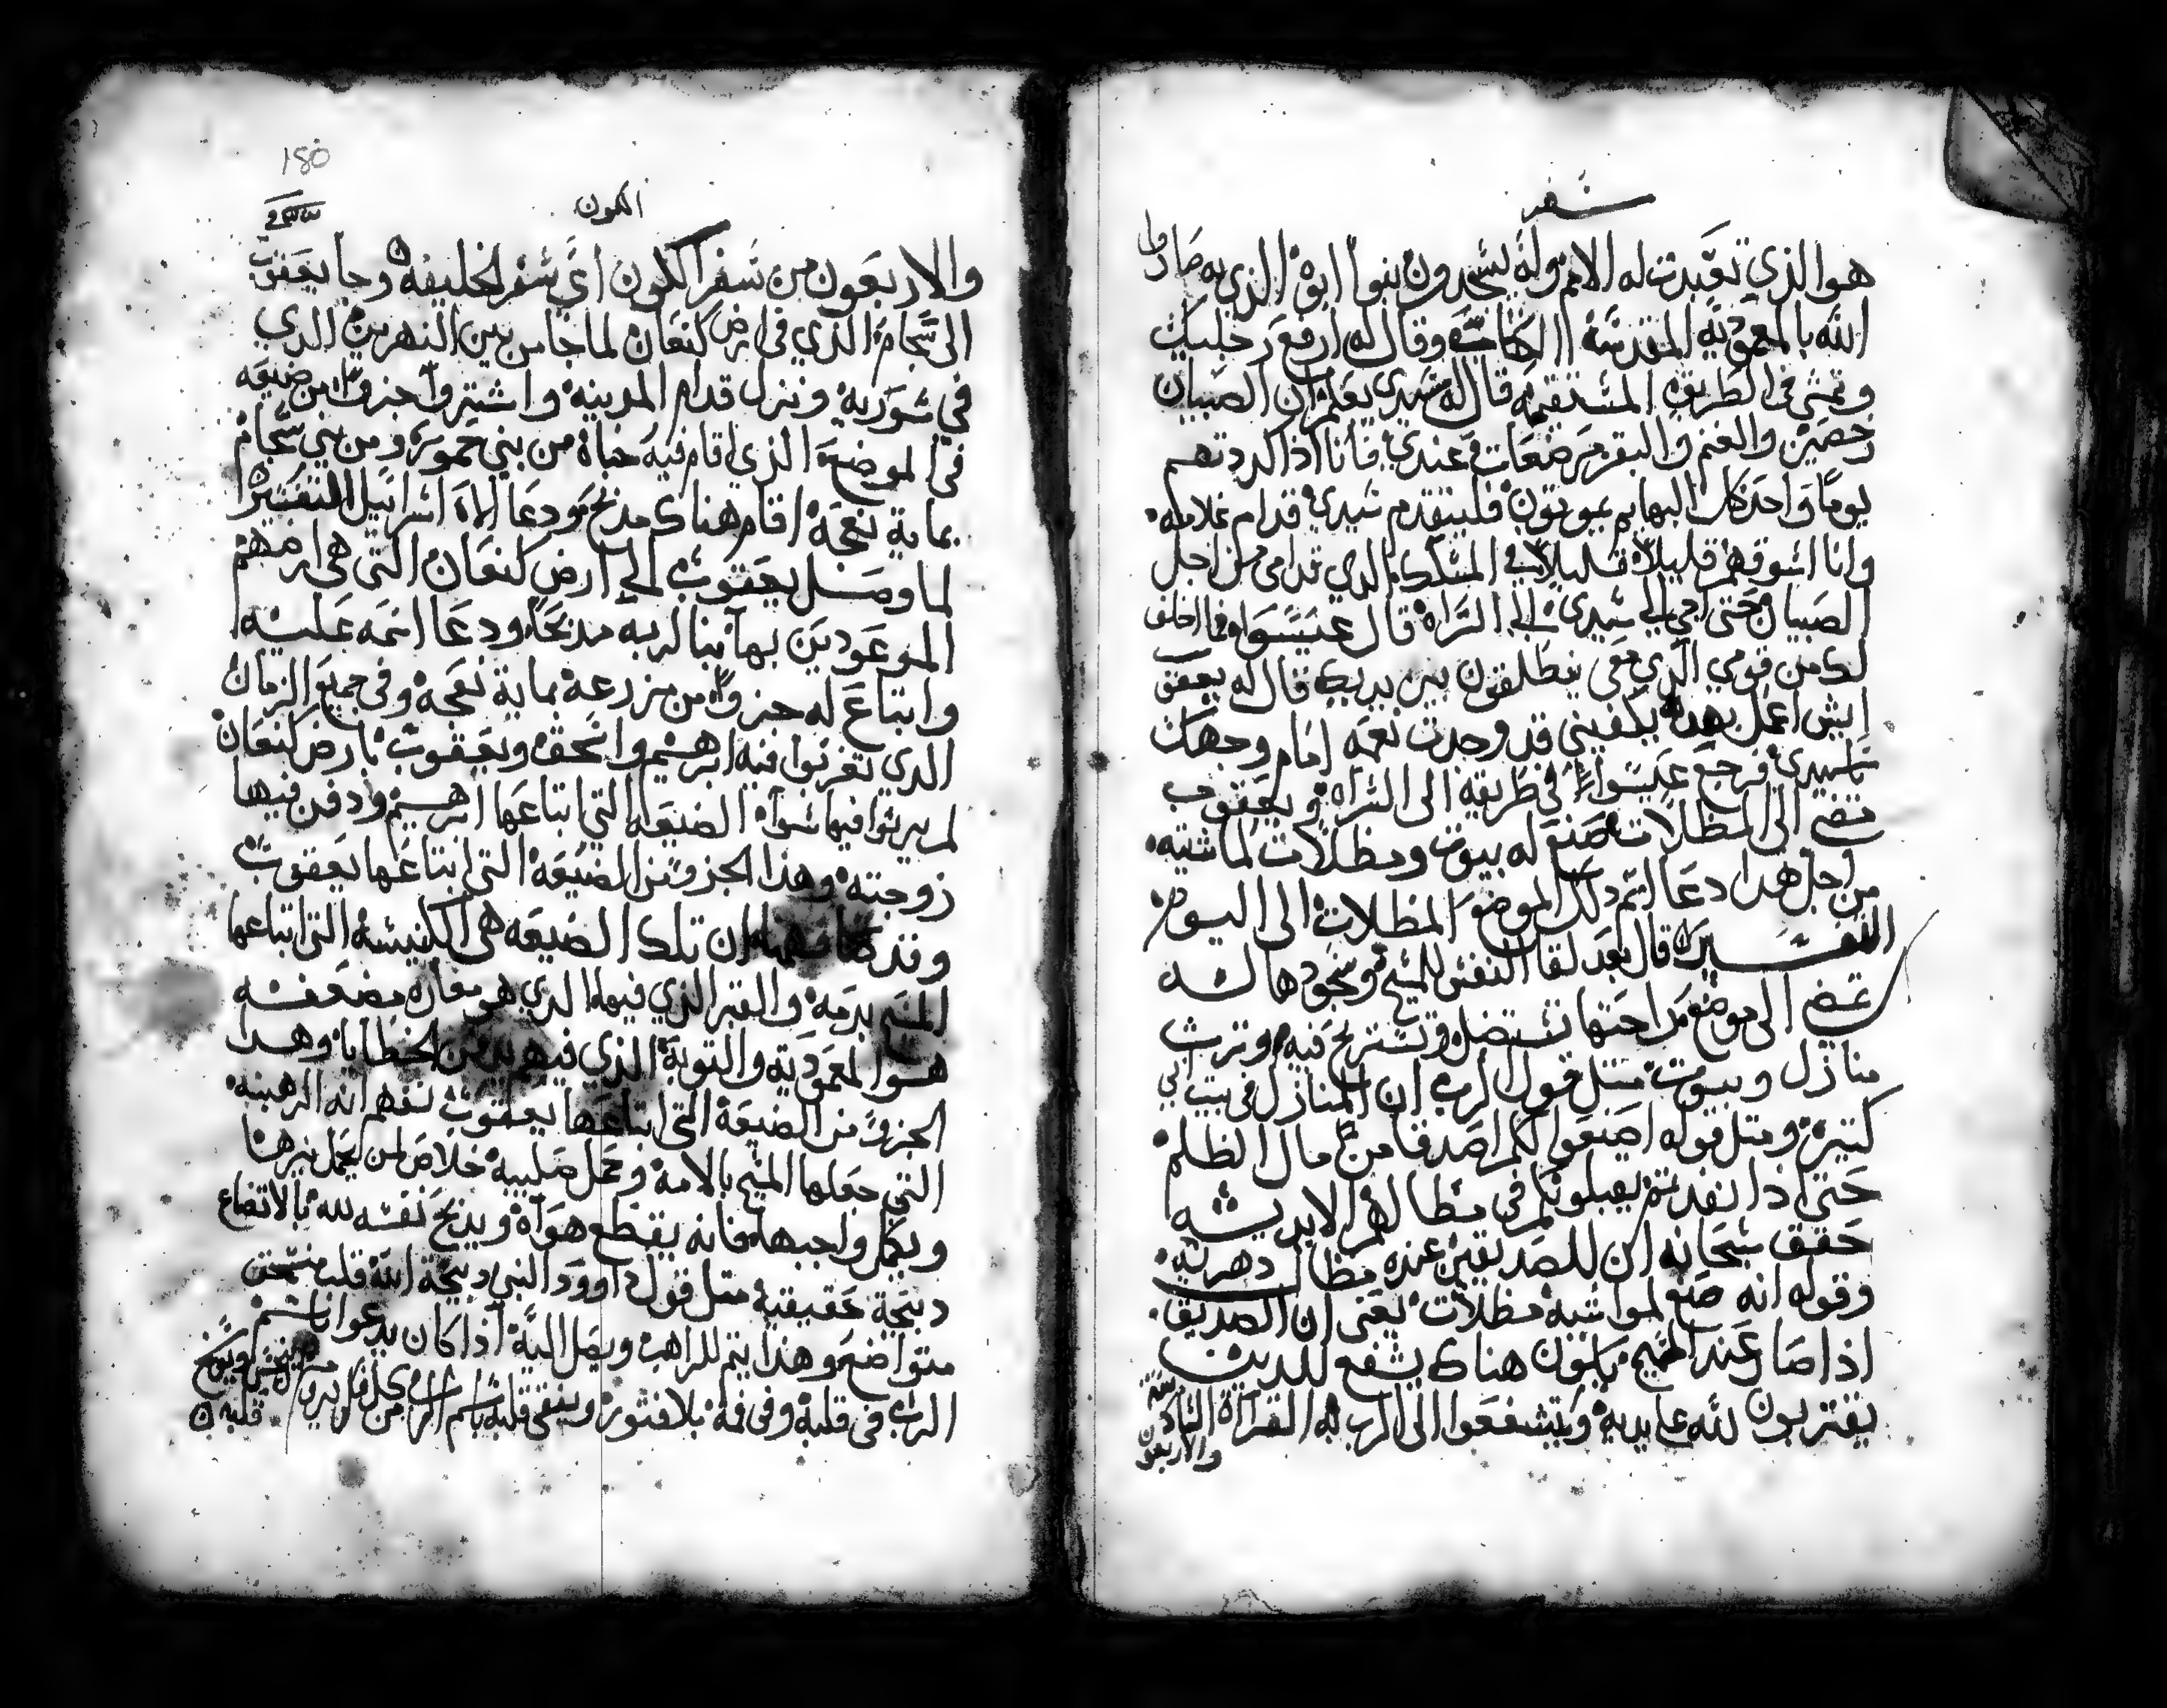 سفر
هو الذي تعبدت له الامم وله يسجدون بنوا ابوة الذي به صاروا
الله بالمعمودية المقدسة وقال له ارفع رجليك
وتمشي في الطريق المستقيمة قال له سيدي يعلم ان الصبيان
رخصين والغنم والبقر مرضعات عندي فانا اذا كددتهم
يوما واحد كل البهايم يموتون فليتقدم سيدي قدام غلامه
وانا اسوقهم قليلا قليلا في المسلك الذي قدامي من اجل
الصبيان حتى اجي الي سيدي الي السراة قال عيسوا انما اخلف
لك من قومي الذي معي ينطلقون بين يديك قال له يعقوب
ايش اعمل بهذا يكفيني قد وجدت نعمه امام وجهك
يا سيدي فرجع عيسوا في طريقه الى السراه ويعقوب
مضي الى المظلات صنع له بيوت ومظلات لماشيته
من اجل هذا دعا اسم ذلك الموضع المظلات الى اليوم
التفسير قال بعد لقا النفس للمسيح وسجودها له
تمضي الى موضع راحتها تستضل وتستريح فيه وترث
منازل وبيوت مثل قول الرب ان المنازل في بيت ابي
كتيرة ومتل قوله اصنعوا لكم اصدقا من مال الظلم
حتى اذا نفد يقبلونكم في مظالهم الابديه
حقق سبحانه ان للصديقين عنده مظال دهرية
وقوله انه صنع لمواشيه مظلات يعني ان الصديق
اذا صار عند المسيح يكون هناك يشفع للذين
يقتربون لله على يديه ويتشفعوا الى الرب به القراة السادسة
والاربعون
١٤٥
الكون
والاربعون من سفر الكون اي سفر الخليقة وجا يعقوب
الى سجام الذي في ارض كنعان لما جا من بين النهرين الذي
في سورية ونزل قدام المدينه واشترى جزوا من ضيعه
في الموضع الذي اقام فيه خباه من بني حمور ومن بني سجام
بماية نعجة اقام هناك مذبح ودعا الاه اسرائيل التفسير
لما وصل يعقوب الى ارض كنعان التي هي ارضهم
الموعودين بها بنا لربه مذبحا ودعا اسمه عليه
وابتاع له جزوا من مزرعة بماية نعجه وفي جميع الزمان
الذي تغربوا فيه ابرهيم واسحق ويعقوب بارض كنعان
لم يرثوا فيها سوا الضيعه التي ابتاعها ابرهيم ودفن فيها
زوجته وهذا الجزو من الضيعة التي ابتاعها يعقوب
وقد ان تلك الضيعه هي الكنيسة التي ابتاعها
المسيح بدمه والقبر الذي فيها الذي هو مغاره مضعفه
هو المعموديه والتوبة الذي فيهم من الخطايا وهذا
الجزو من الضيعة التي ابتاعها يعقوب نفهم انه الرهبنه
التي جعلها المسيح بالامه وحمل صليبه خلاص لمن يحمل نيرها
ويكمل واجبها فانه يقطع هواه ويذبح نفسه لله بالاتضاع
ذبيحة حقيقية مثل قول داوود النبي ذبيحة الله قلب منسحق
متواضع وهذا يتم للراهب ويصل اليه اذا كان يدعوا باسم
الرب في قلبه وفي فمه بلا فتور وينقي قلبه باسم الرب من كل فكر
قلبه